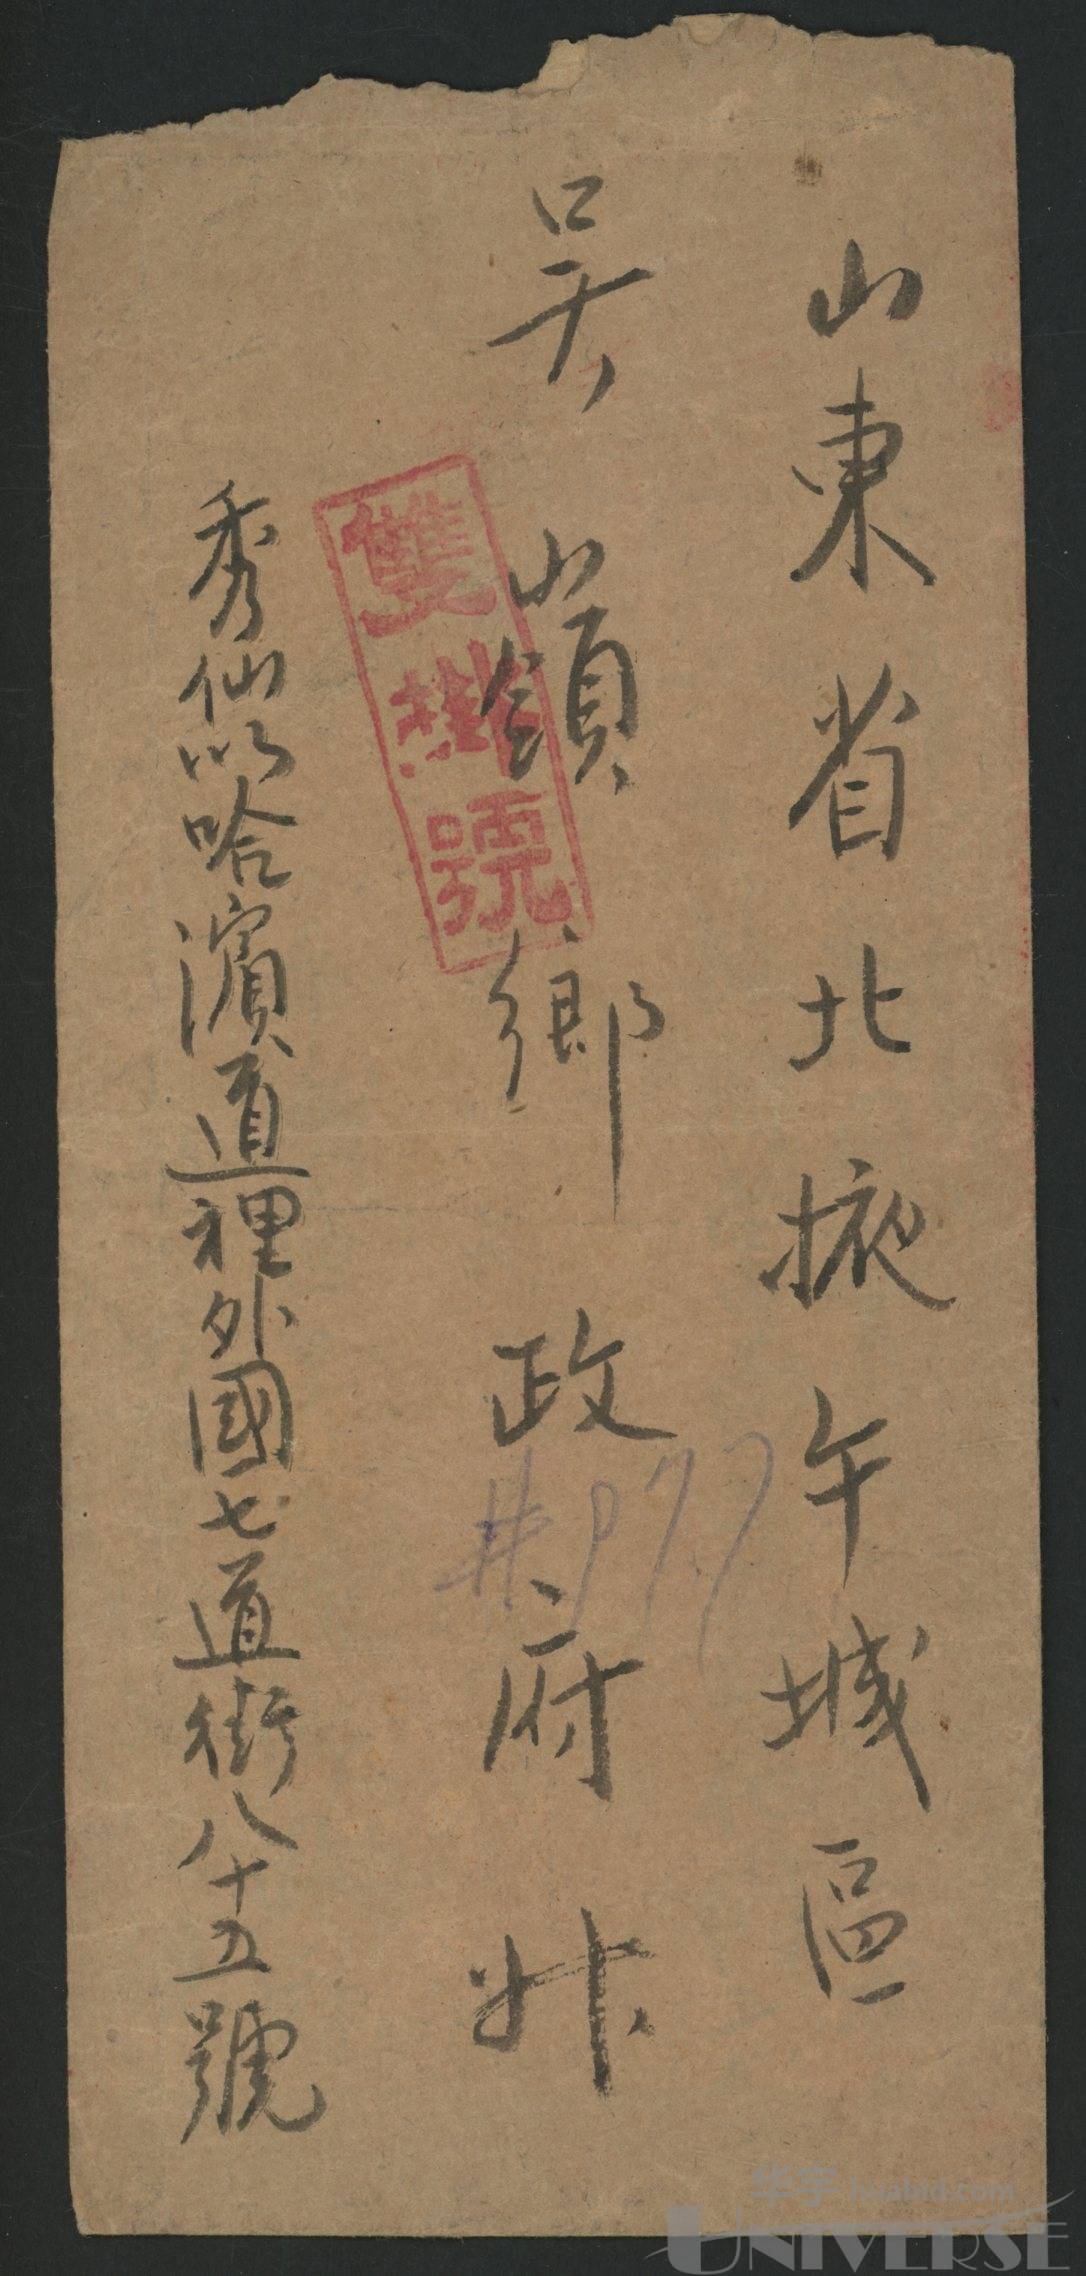 山東省北掖午城區
吴嶺鄉政府
秀仙以哈濱道裡外國七道街八十五號
雙掛號
#977
华宇 huabid.com
UNIVERSE